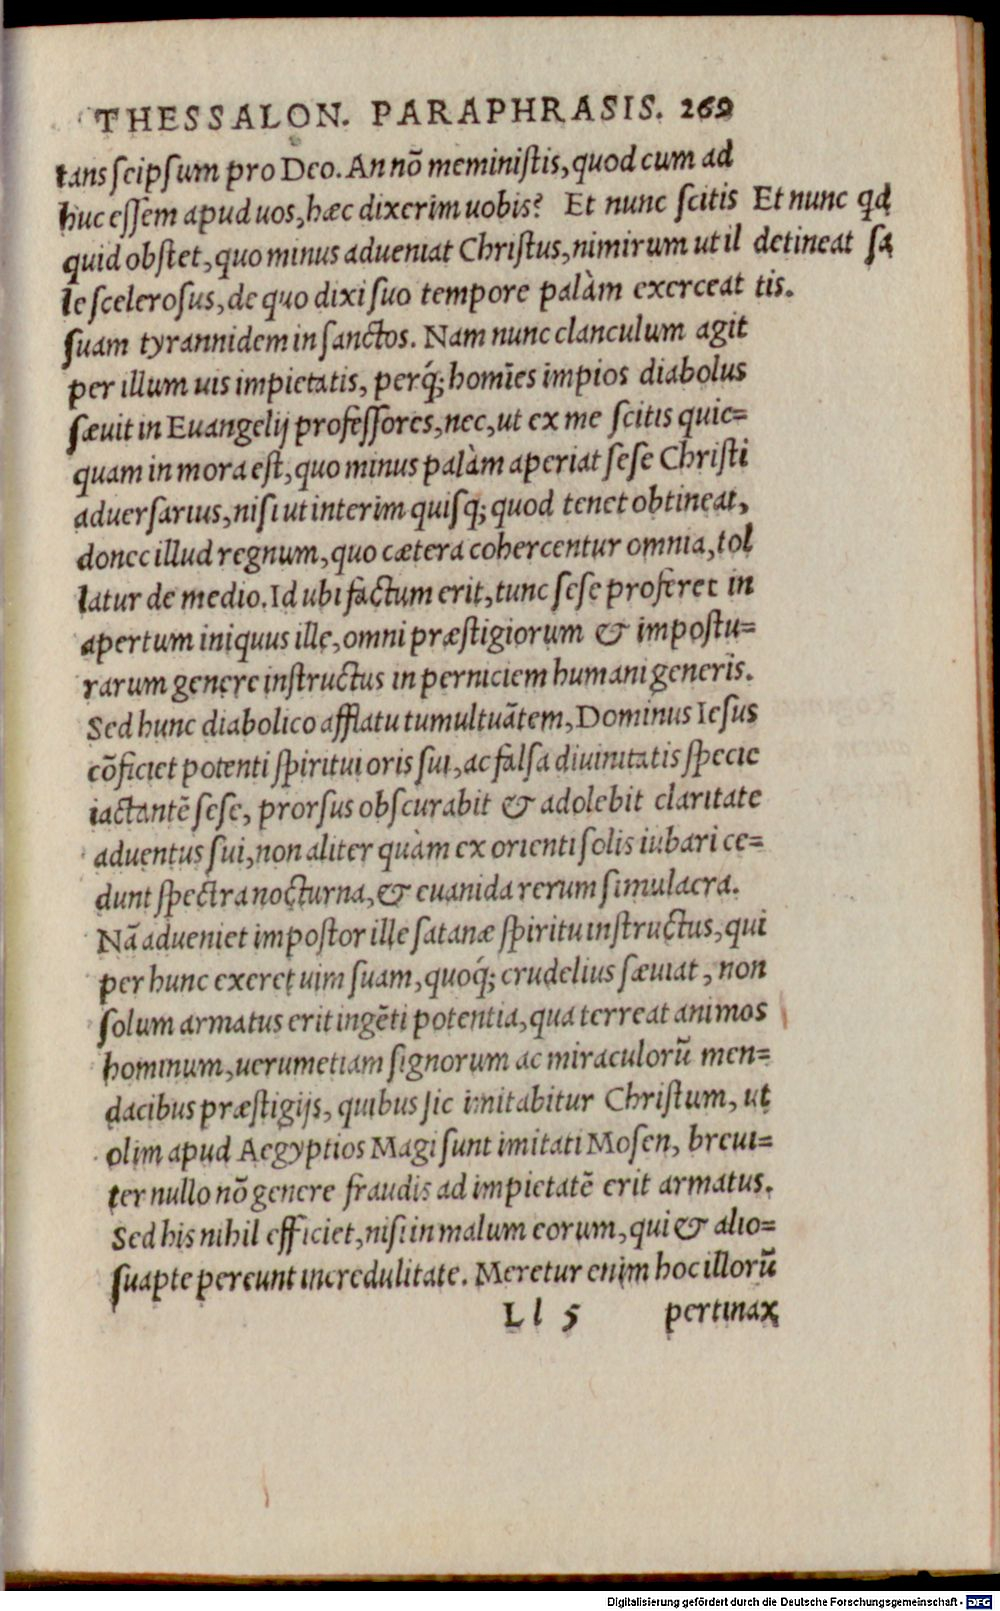 THESSALON. PARAPHRASIS. 269
tans seipsum pro Deo. An nõ meministis, quod cum ad
huc essem apud uos, hæc dixerim uobis? Et nunc scitis
Et nunc qd
quid obstet, quo minus adueniat Christus, nimirum ut il
detineat sci
le scelerosus, de quo dixi suo tempore palàm exerceat
tis.
suam tyrannidem in sanctos. Nam nunc clanculum agit
per illum uis impietatis, perq́; homĩes impios diabolus
sæuit in Euangelij professores, nec, ut ex me scitis quic=
quam in mora est, quo minus palàm aperiat sese Christi
aduersarius, nisi ut interim quisq; quod tenet obtineat,
donec illud regnum, quo cætera cohercentur omnia, tol
latur de medio. Id ubi factum erit, tunc sese proferet in
apertum iniquus ille, omni præstigiorum & impostu=
rarum genere instructus in perniciem humani generis.
Sed hunc diabolico afflatu tumultuãtem, Dominus Iesus
cõficiet potenti spiritui oris sui, ac falsa diuinitatis specie
iactantẽ sese, prorsus obscurabit & adolebit claritate
aduentus sui, non aliter quàm ex orienti solis iubari ce=
dunt spectra nocturna, & euanida rerum simulacra.
Nã adueniet impostor ille satanæ spiritu instructus, qui
per hunc exeret uim suam, quoq́; crudelius sæuiat, non
solum armatus erit ingẽti potentia, qua terreat animos
hominum, uerumetiam signorum ac miraculorũ men=
dacibus præstigijs, quibus sic imitabitur Christum, ut
olim apud Aegyptios Magi sunt imitati Mosen, breui=
ter nullo nõ genere fraudis ad impietatẽ erit armatus.
Sed his nihil efficiet, nisi in malum eorum, qui & alio=
suapte pereunt incredulitate. Meretur enim hoc illorũ
Ll 5 pertinax
Digitalisierung gefördert durch die Deutsche Forschungsgemeinschaft - DFG